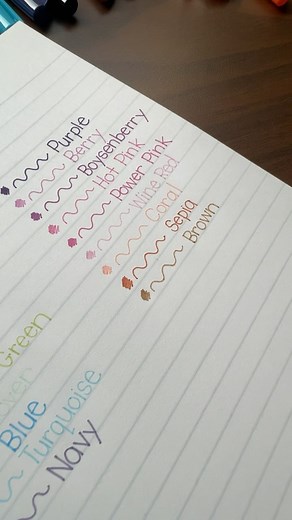 Purple
Berry
Boysenberry
Hot Pink
Power Pink
Wine Red
Coral
Sepia
Brown
Green
Blue
Turquoise
Navy